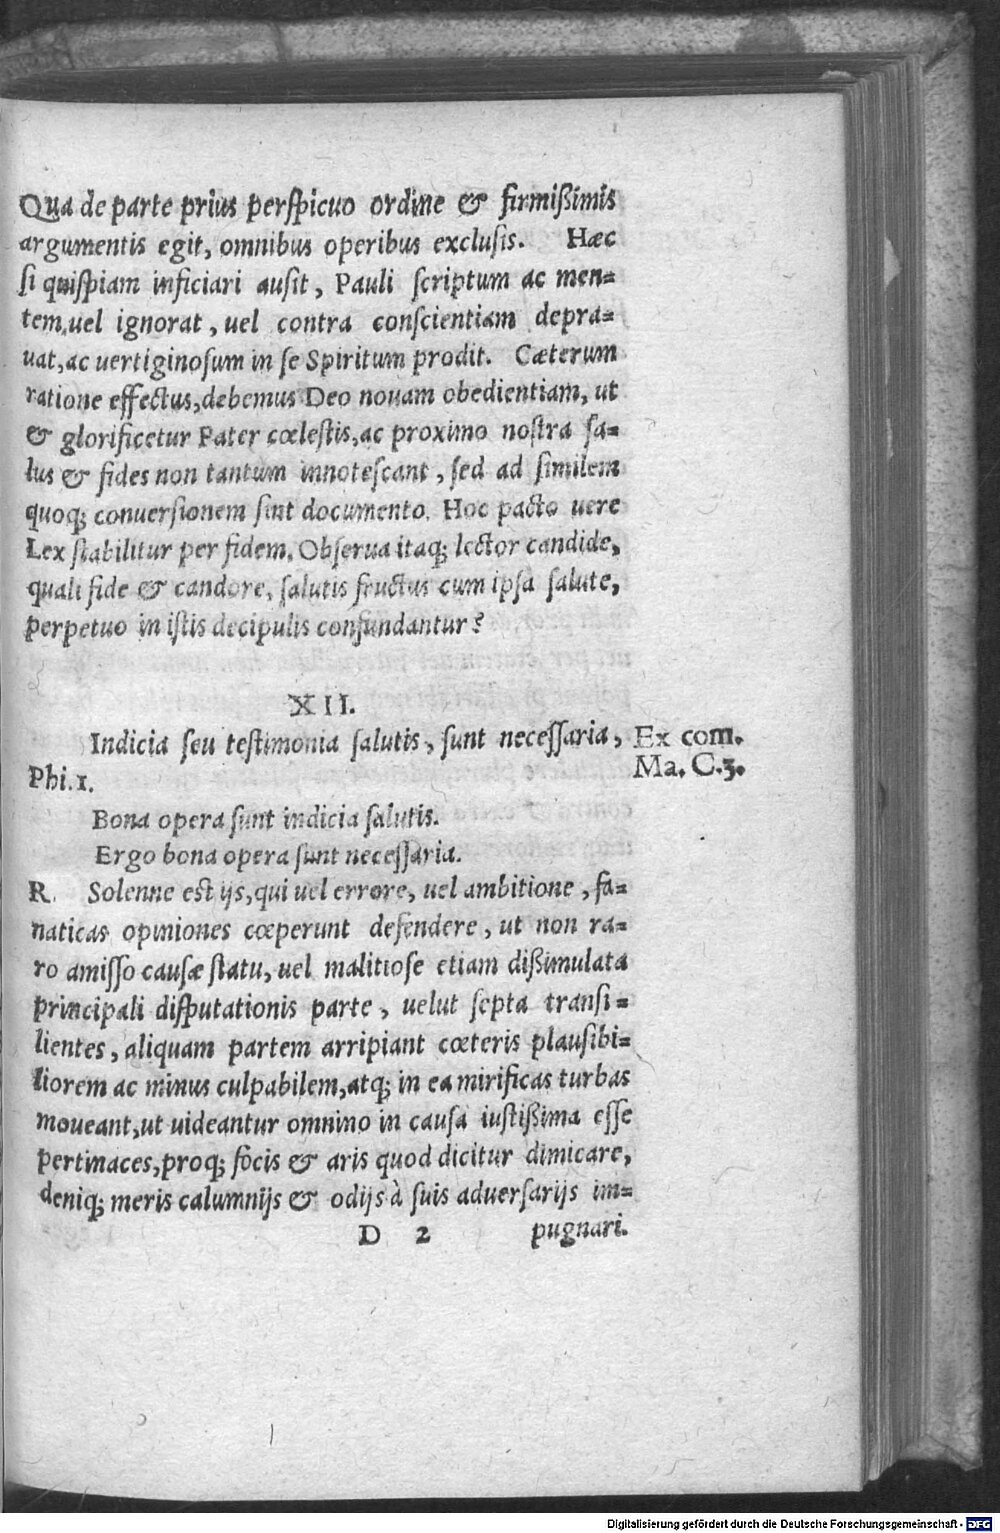 Qua de parte prius perſpicuo ordine & firmißimis
argumentis egit, omnibus operibus excluſis. Hæc
ſi quiſpiam inficiari auſit, Pauli ſcriptum ac men=
tem, uel ignorat, uel contra conſcientiam depra=
uat, ac uertiginoſum in ſe Spiritum prodit. Cæterum
ratione effectus, debemus Deo nouam obedientiam, ut
& glorificetur Pater cœleſtis, ac proximo noſtra ſa=
lus & fides non tantum innoteſcant, ſed ad ſimilem
quoq; conuerſionem ſint documento. Hoc pacto uere
Lex ſtabilitur per fidem. Obſerua itaq; lector candide,
quali fide & candore, ſalutis fructus cum ipſa ſalute,
perpetuo in iſtis decipulis confundantur?
XII.
Indicia ſeu teſtimonia ſalutis, ſunt neceſſaria,
Phi. 1.
Ex com.
Ma. C.3.
Bona opera ſunt indicia ſalutis.
Ergo bona opera ſunt neceſſaria.
R. Solenne est ijs, qui uel errore, uel ambitione, fa=
naticas opiniones cœperunt defendere, ut non ra=
ro amiſſo cauſæ ſtatu, uel malitioſe etiam dißimulata
principali diſputationis parte, uelut ſepta tranſi=
lientes, aliquam partem arripiant cœteris plauſibi=
liorem ac minus culpabilem, atq; in ea mirificas turbas
moueant, ut uideantur omnino in cauſa iuſtißima eſſe
pertinaces, proq; focis & aris quod dicitur dimicare,
deniq; meris calumnijs & odijs à ſuis aduerſarijs im=
D 2 pugnari.
Digitalisierung gefördert durch die Deutsche Forschungsgemeinschaft - DFG